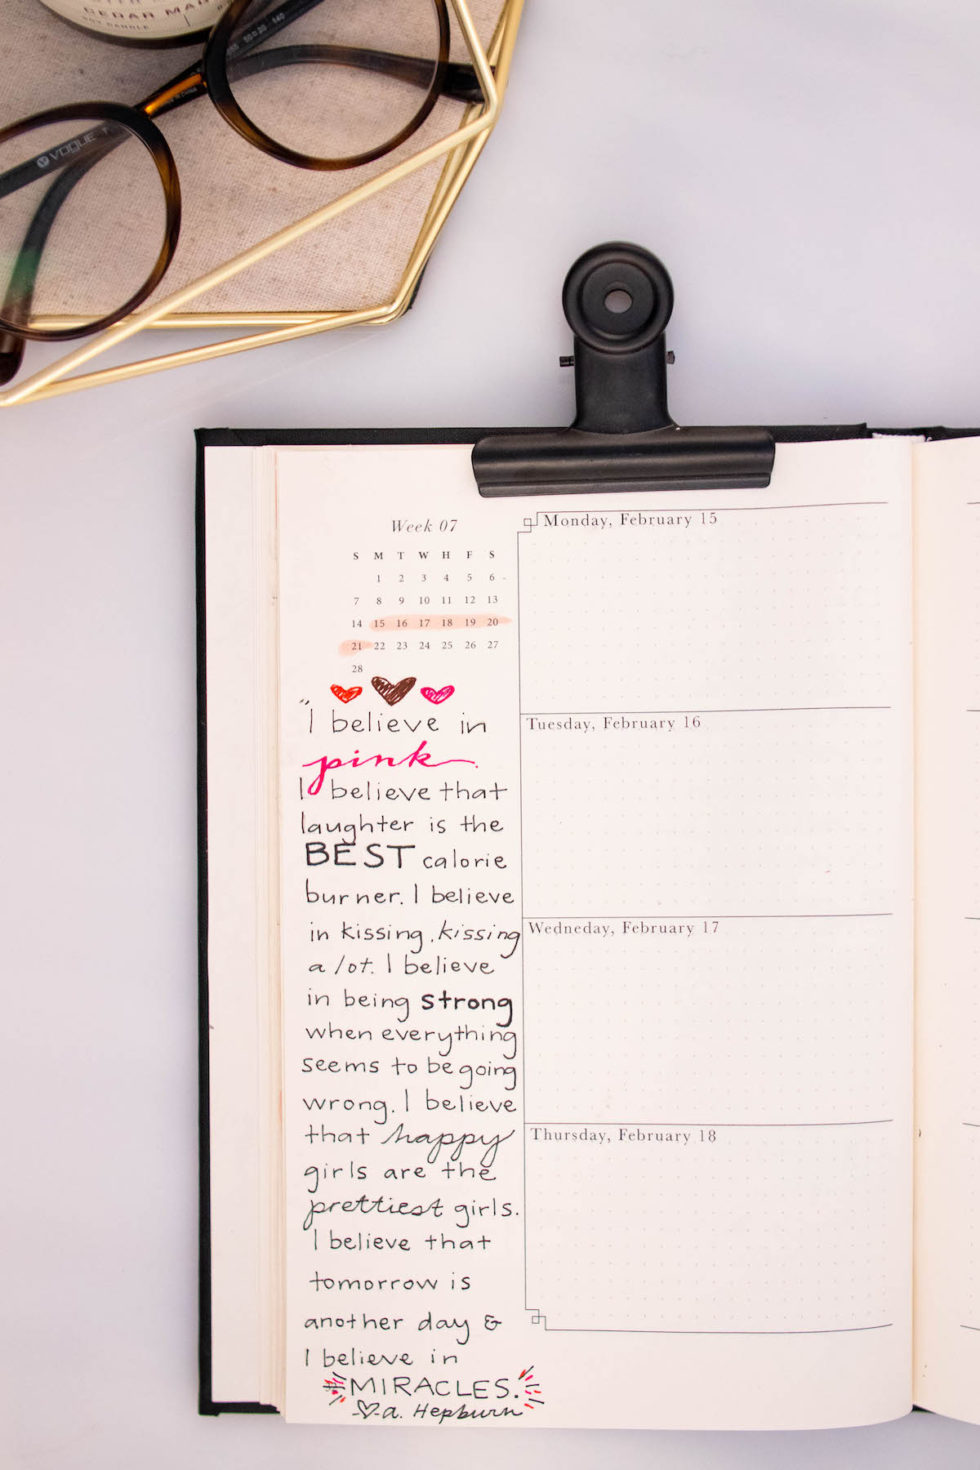 CEDAR MA
SOY CANDLE
50 20 140
VOGUE
Week 07
S M T W H F S
1 2 3 4 5 6
7 8 9 10 11 12 13
14 15 16 17 18 19 20
21 22 23 24 25 26 27
28
"I believe in
pink.
I believe that
laughter is the
BEST calorie
burner. I believe
in kissing, kissing
a lot. I believe
in being strong
when everything
seems to be going
wrong. I believe
that happy
girls are the
prettiest girls.
I believe that
tomorrow is
another day &
I believe in
MIRACLES.
a. Hepburn
Monday, February 15
Tuesday, February 16
Wedneday, February 17
Thursday, February 18